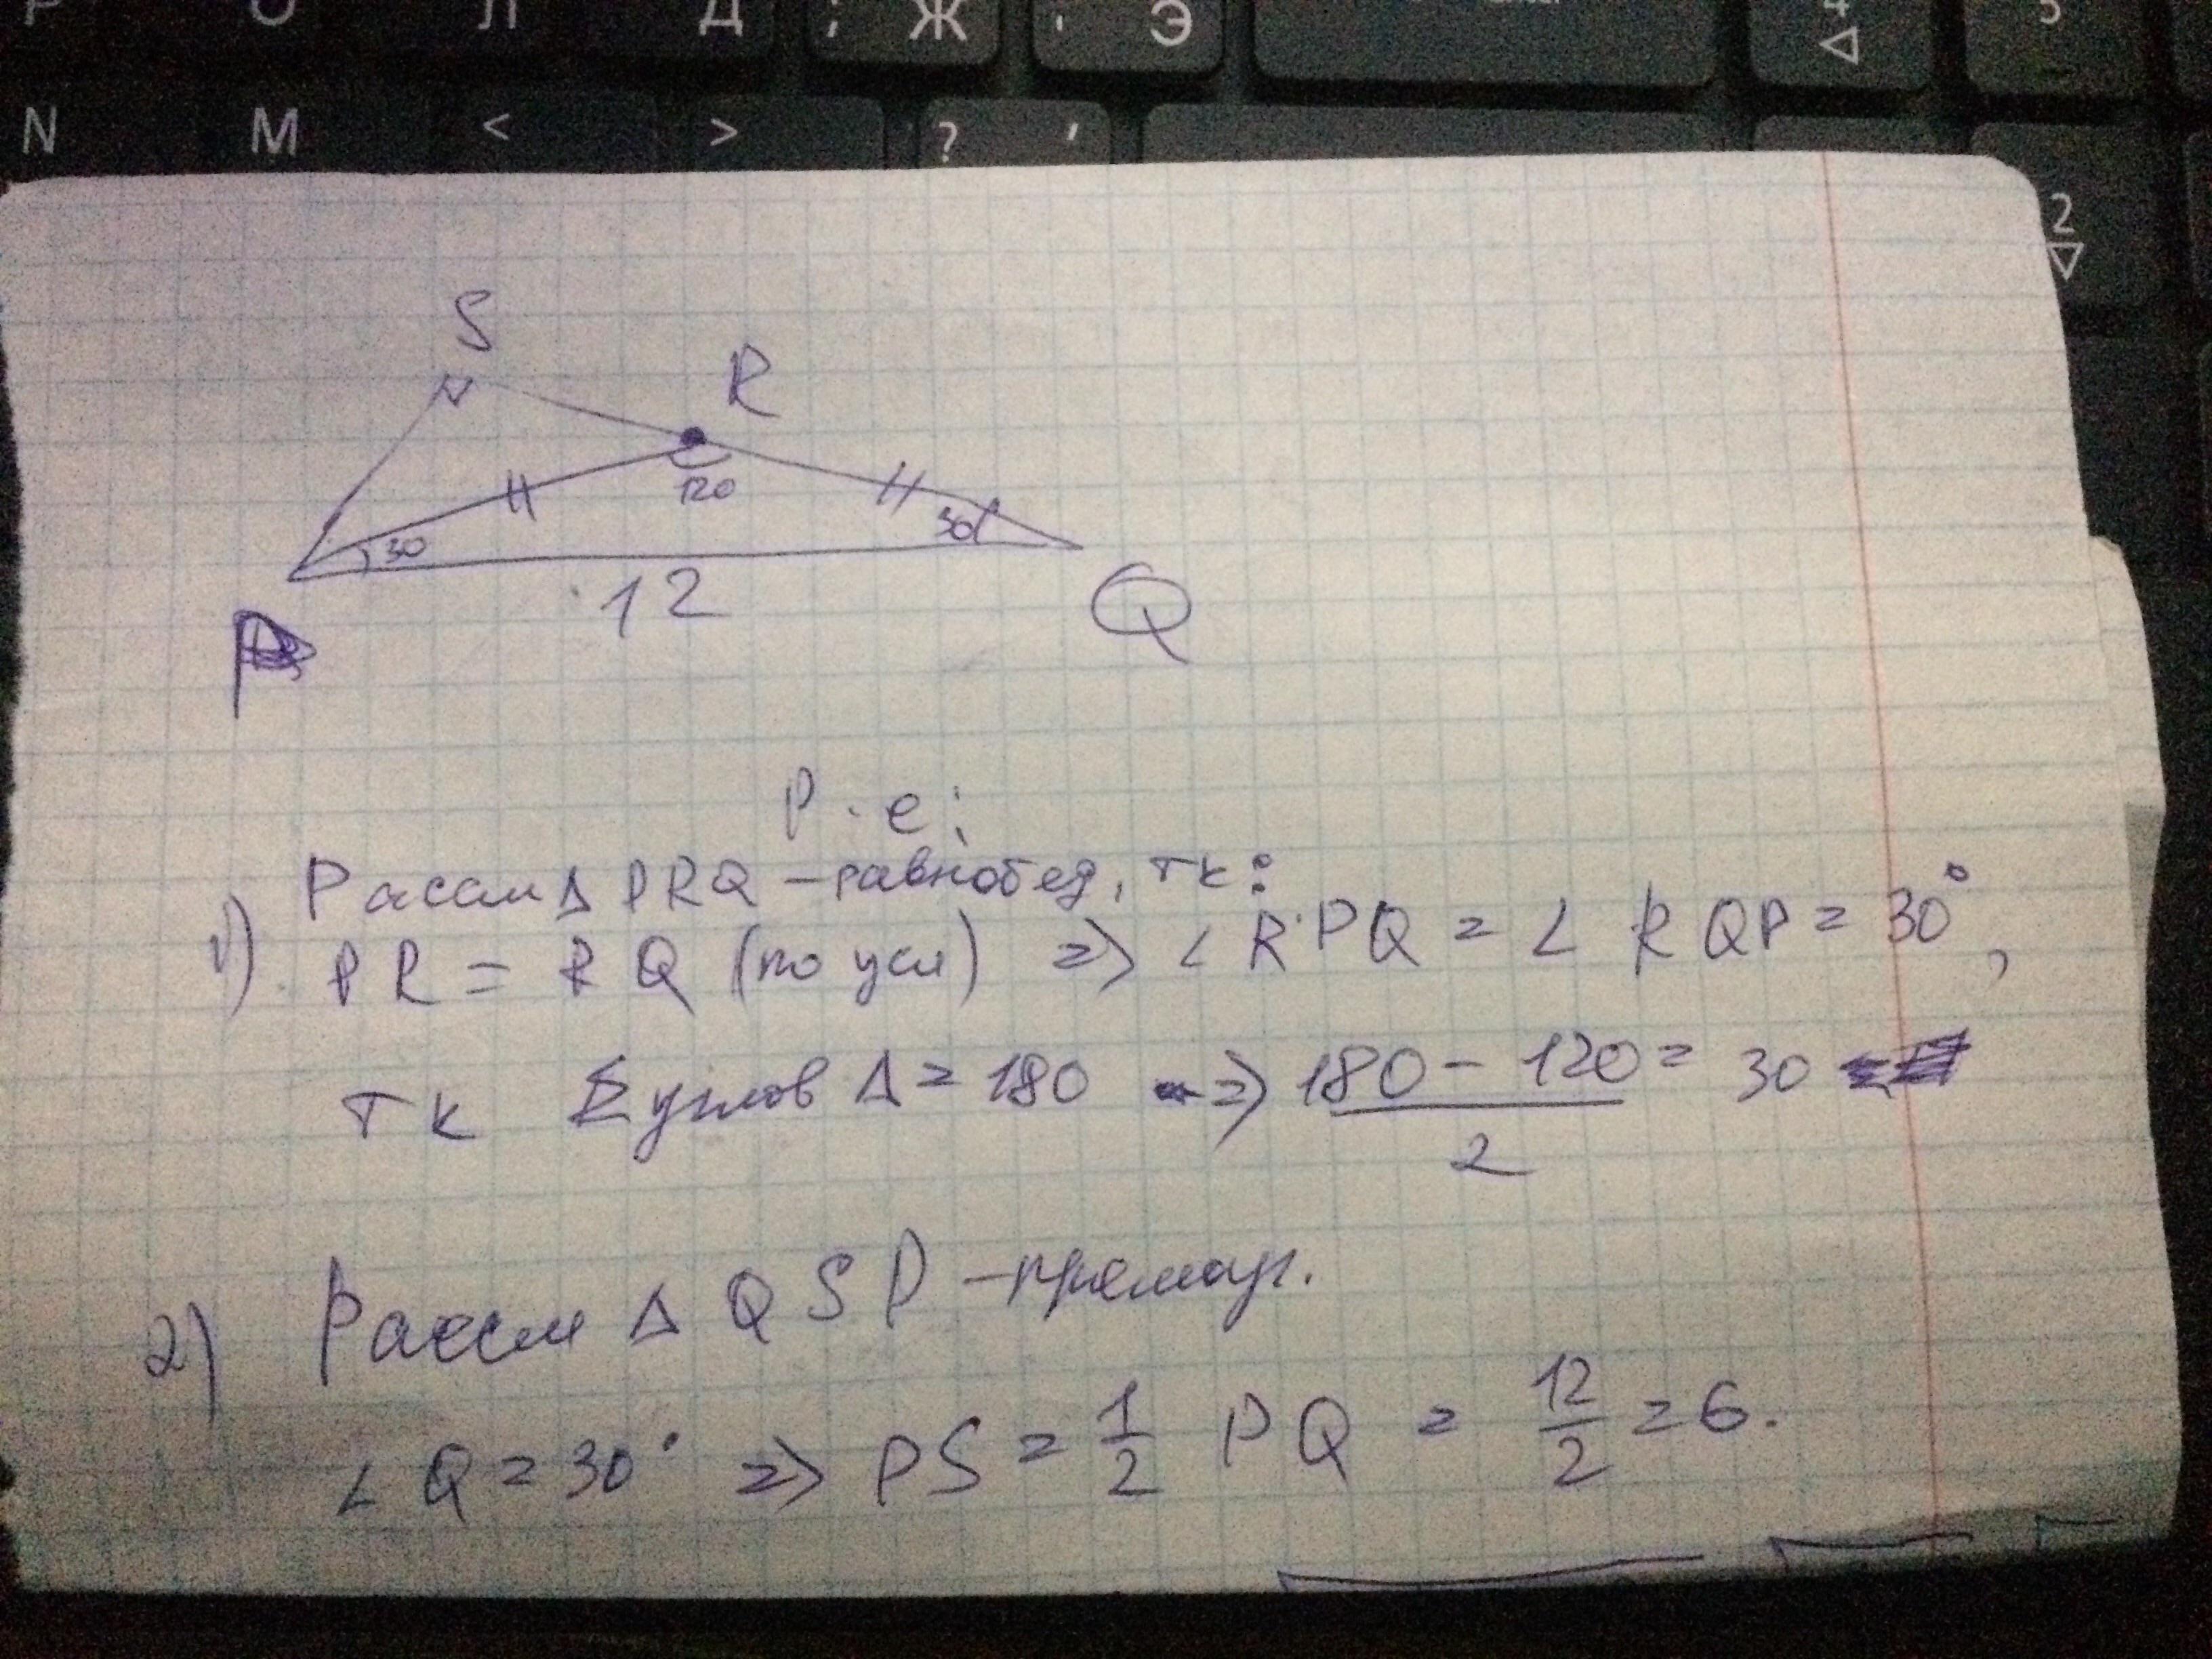 Р О Л Д ; Ж ' Э 4 5
N M < > ? ' 2
S
R
120
30
30
12
P
Q
Р-е:
1) Рассм Δ PRQ – равнобед, тк:
PR = RQ (по усл) => ∠ RPQ = ∠ RQP = 30°,
тк Σ углов Δ = 180 => (180 - 120)/2 = 30
2) Рассм Δ QSP – прямоуг.
∠ Q = 30° => PS = 1/2 PQ = 12/2 = 6.